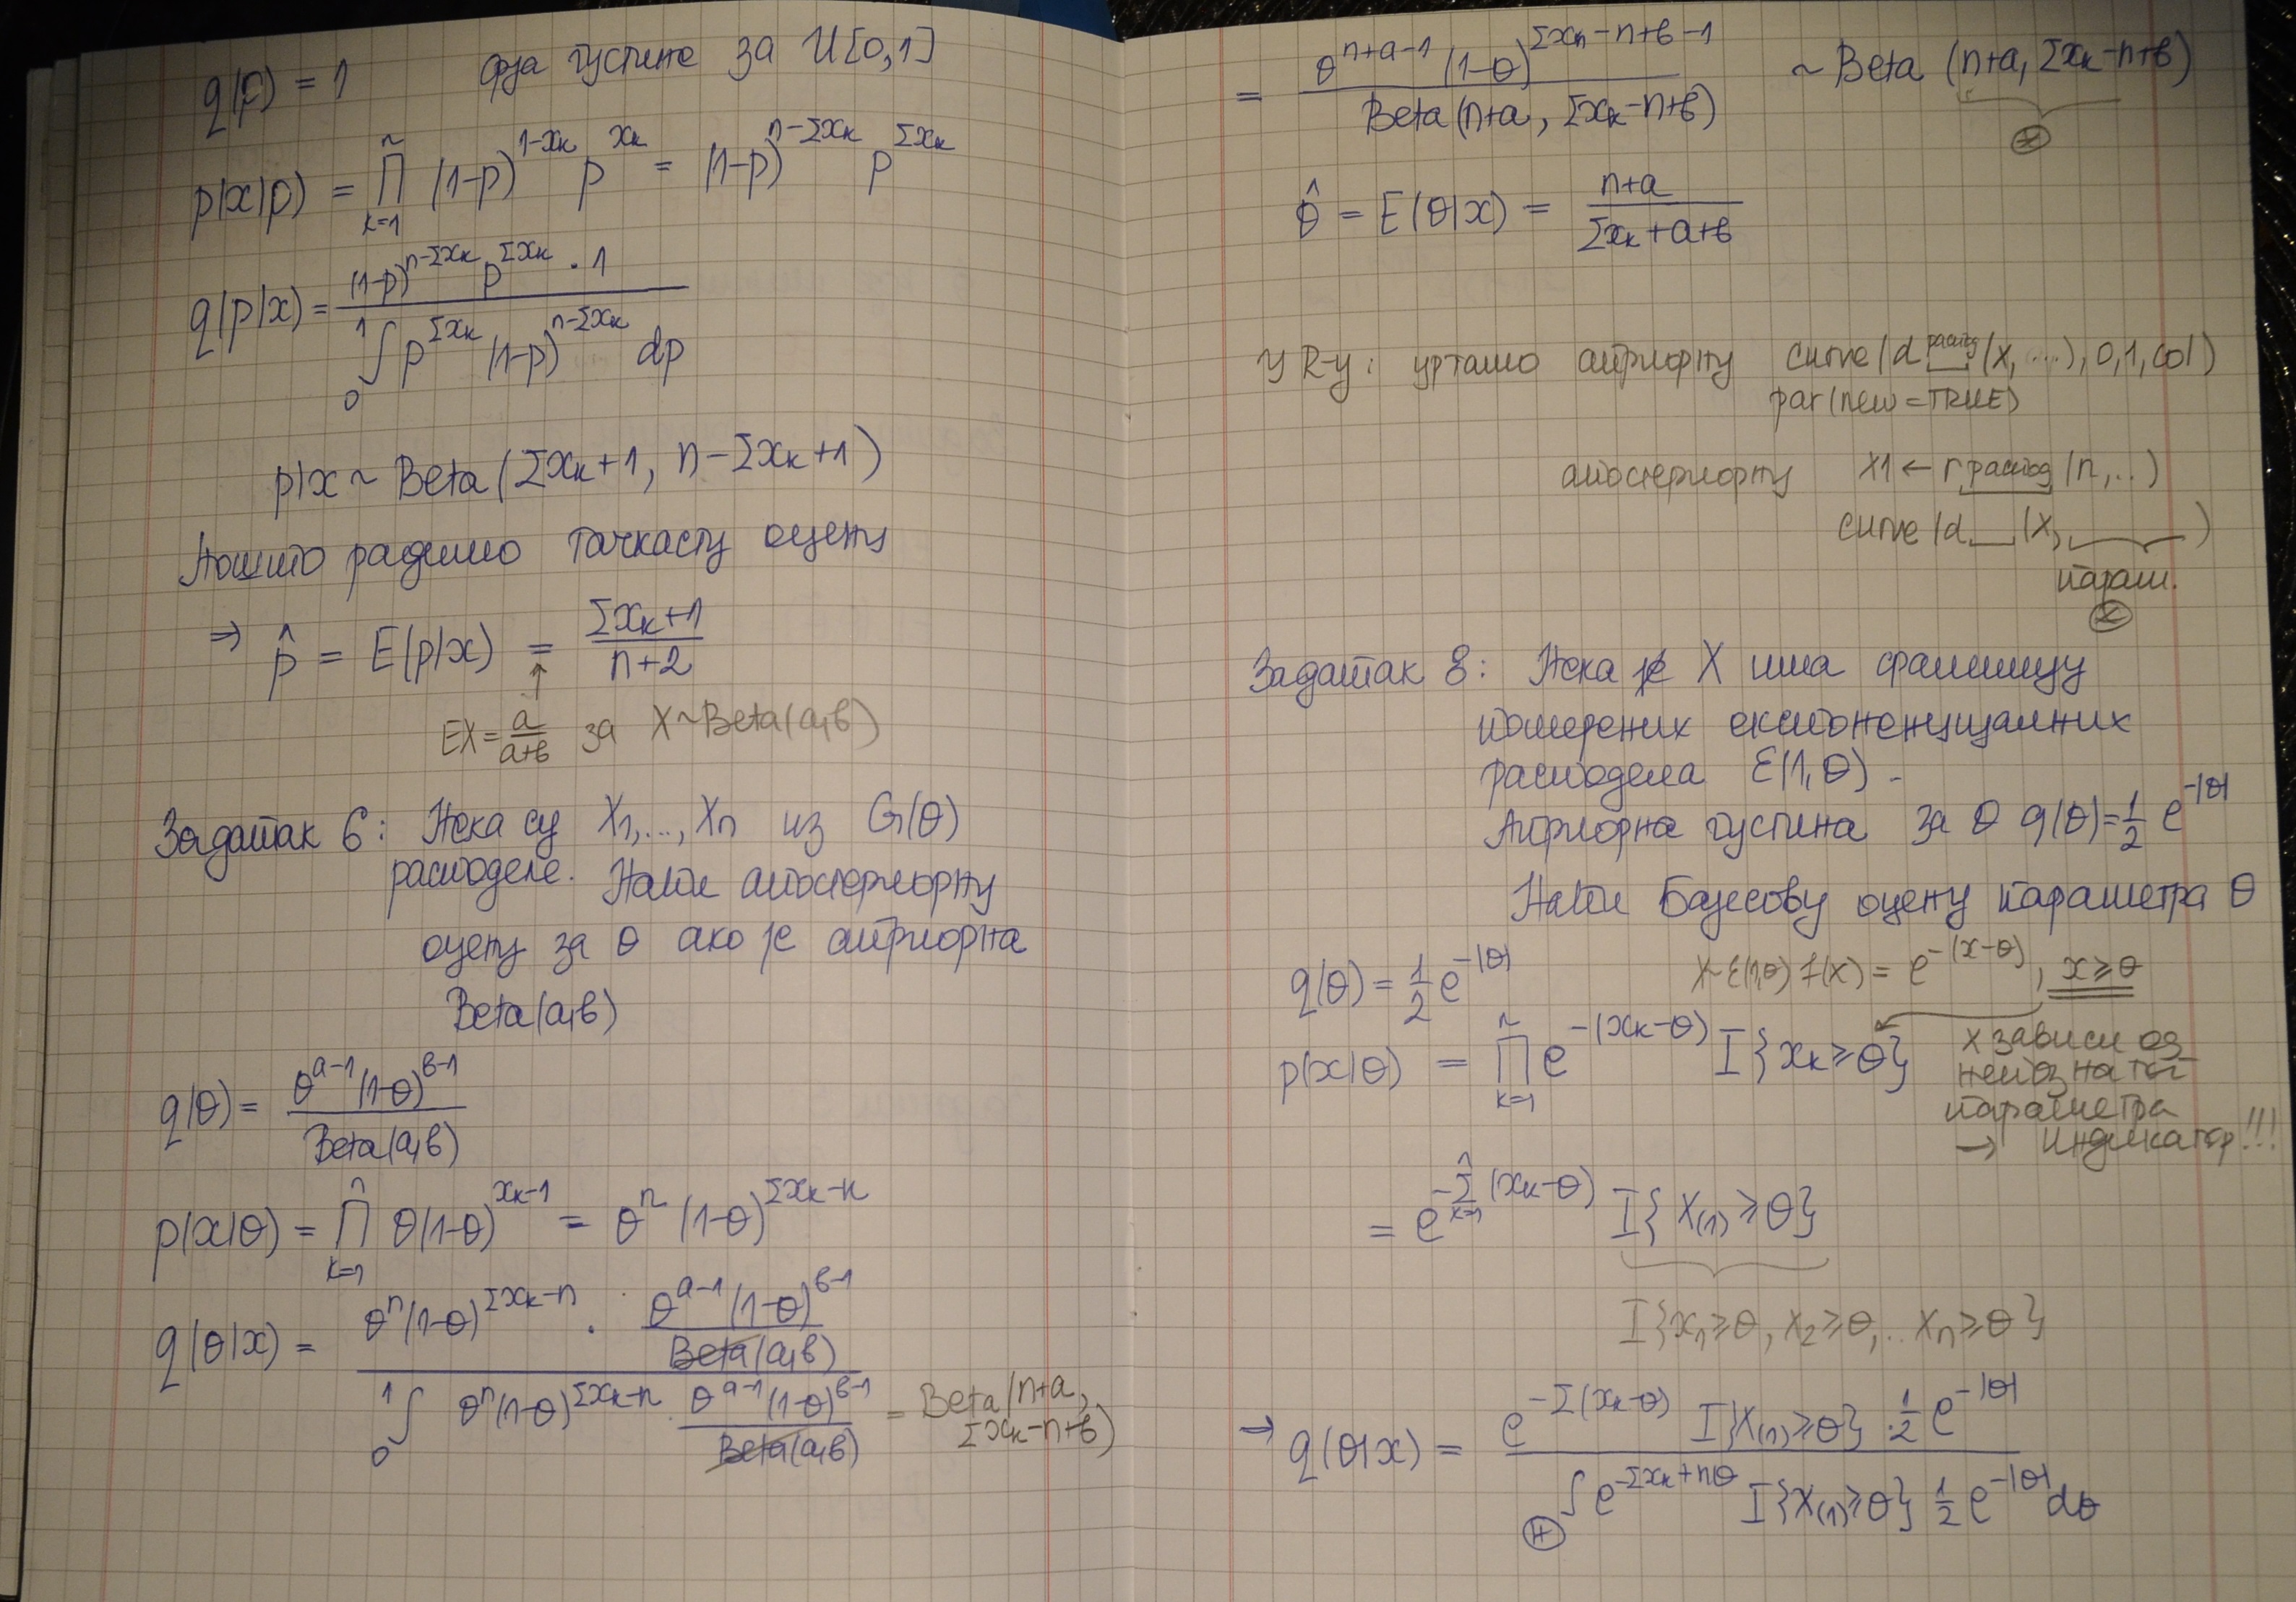 q(p) = 1 фја густине за U[0,1]
p(x|p) = ∏_{k=1}^{n} (1-p)^{1-x_k} p^{x_k} = (1-p)^{n-Σx_k} p^{Σx_k}
q(p|x) = \frac{(1-p)^{n-Σx_k} p^{Σx_k} · 1}{∫_0^1 p^{Σx_k} (1-p)^{n-Σx_k} dp}
p|x ~ Beta(Σx_k+1, n-Σx_k+1)
Пошто радимо тачкасту оцену
⇒ \hat{p} = E(p|x) = \frac{Σx_k+1}{n+2}
↑
EX = \frac{a}{a+b} за X~Beta(a,b)
Задатак 6: Нека су X_1,...,X_n из G(θ)
расподеле. Наћи апостериорну
оцену за θ ако је априорна
Beta(a,b)
q(θ) = \frac{θ^{a-1}(1-θ)^{b-1}}{Beta(a,b)}
p(x|θ) = ∏_{k=1}^{n} θ(1-θ)^{x_k-1} = θ^n (1-θ)^{Σx_k-n}
q(θ|x) = \frac{θ^n(1-θ)^{Σx_k-n} · \frac{θ^{a-1}(1-θ)^{b-1}}{Beta(a,b)}}{∫_0^1 θ^n(1-θ)^{Σx_k-n} · \frac{θ^{a-1}(1-θ)^{b-1}}{Beta(a,b)}} = Beta(n+a,
Σx_k-n+b)
= \frac{θ^{n+a-1}(1-θ)^{Σx_n-n+b-1}}{Beta(n+a, Σx_k-n+b)} ~ Beta(n+a, Σx_k-n+b)
\hat{θ} = E(θ|x) = \frac{n+a}{Σx_k+a+b}
У R-у: цртамо априорну curve(d распод(x,...), 0,1, col)
par(new=TRUE)
апостериорну x1 ← r распод (n,..)
curve(d__(x, )
парам.
Задатак 8: Нека је X има фамилију
померених експоненцијалних
расподела ε(1,θ).
Априорна густина за θ q(θ)=\frac{1}{2} e^{-|θ|}
Наћи Бајесову оцену параметра θ
q(θ) = \frac{1}{2} e^{-|θ|} X~ε(1,θ) f(x) = e^{-(x-θ)}, x≥θ
p(x|θ) = ∏_{k=1}^{n} e^{-(x_k-θ)} I{x_k≥θ}
x зависи од
непознатог
параметра
→ индикатор!!!
= e^{-Σ_{k=1}^{n}(x_k-θ)} I{X_{(1)}≥θ}
I{x_1≥θ, x_2≥θ,.. x_n≥θ}
⇒ q(θ|x) = \frac{e^{-Σ(x_k-θ)} I{X_{(1)}≥θ} · \frac{1}{2} e^{-|θ|}}{∫_{Ⓗ} e^{-Σx_k+nθ} I{X_{(1)}≥θ} \frac{1}{2} e^{-|θ|} dθ}